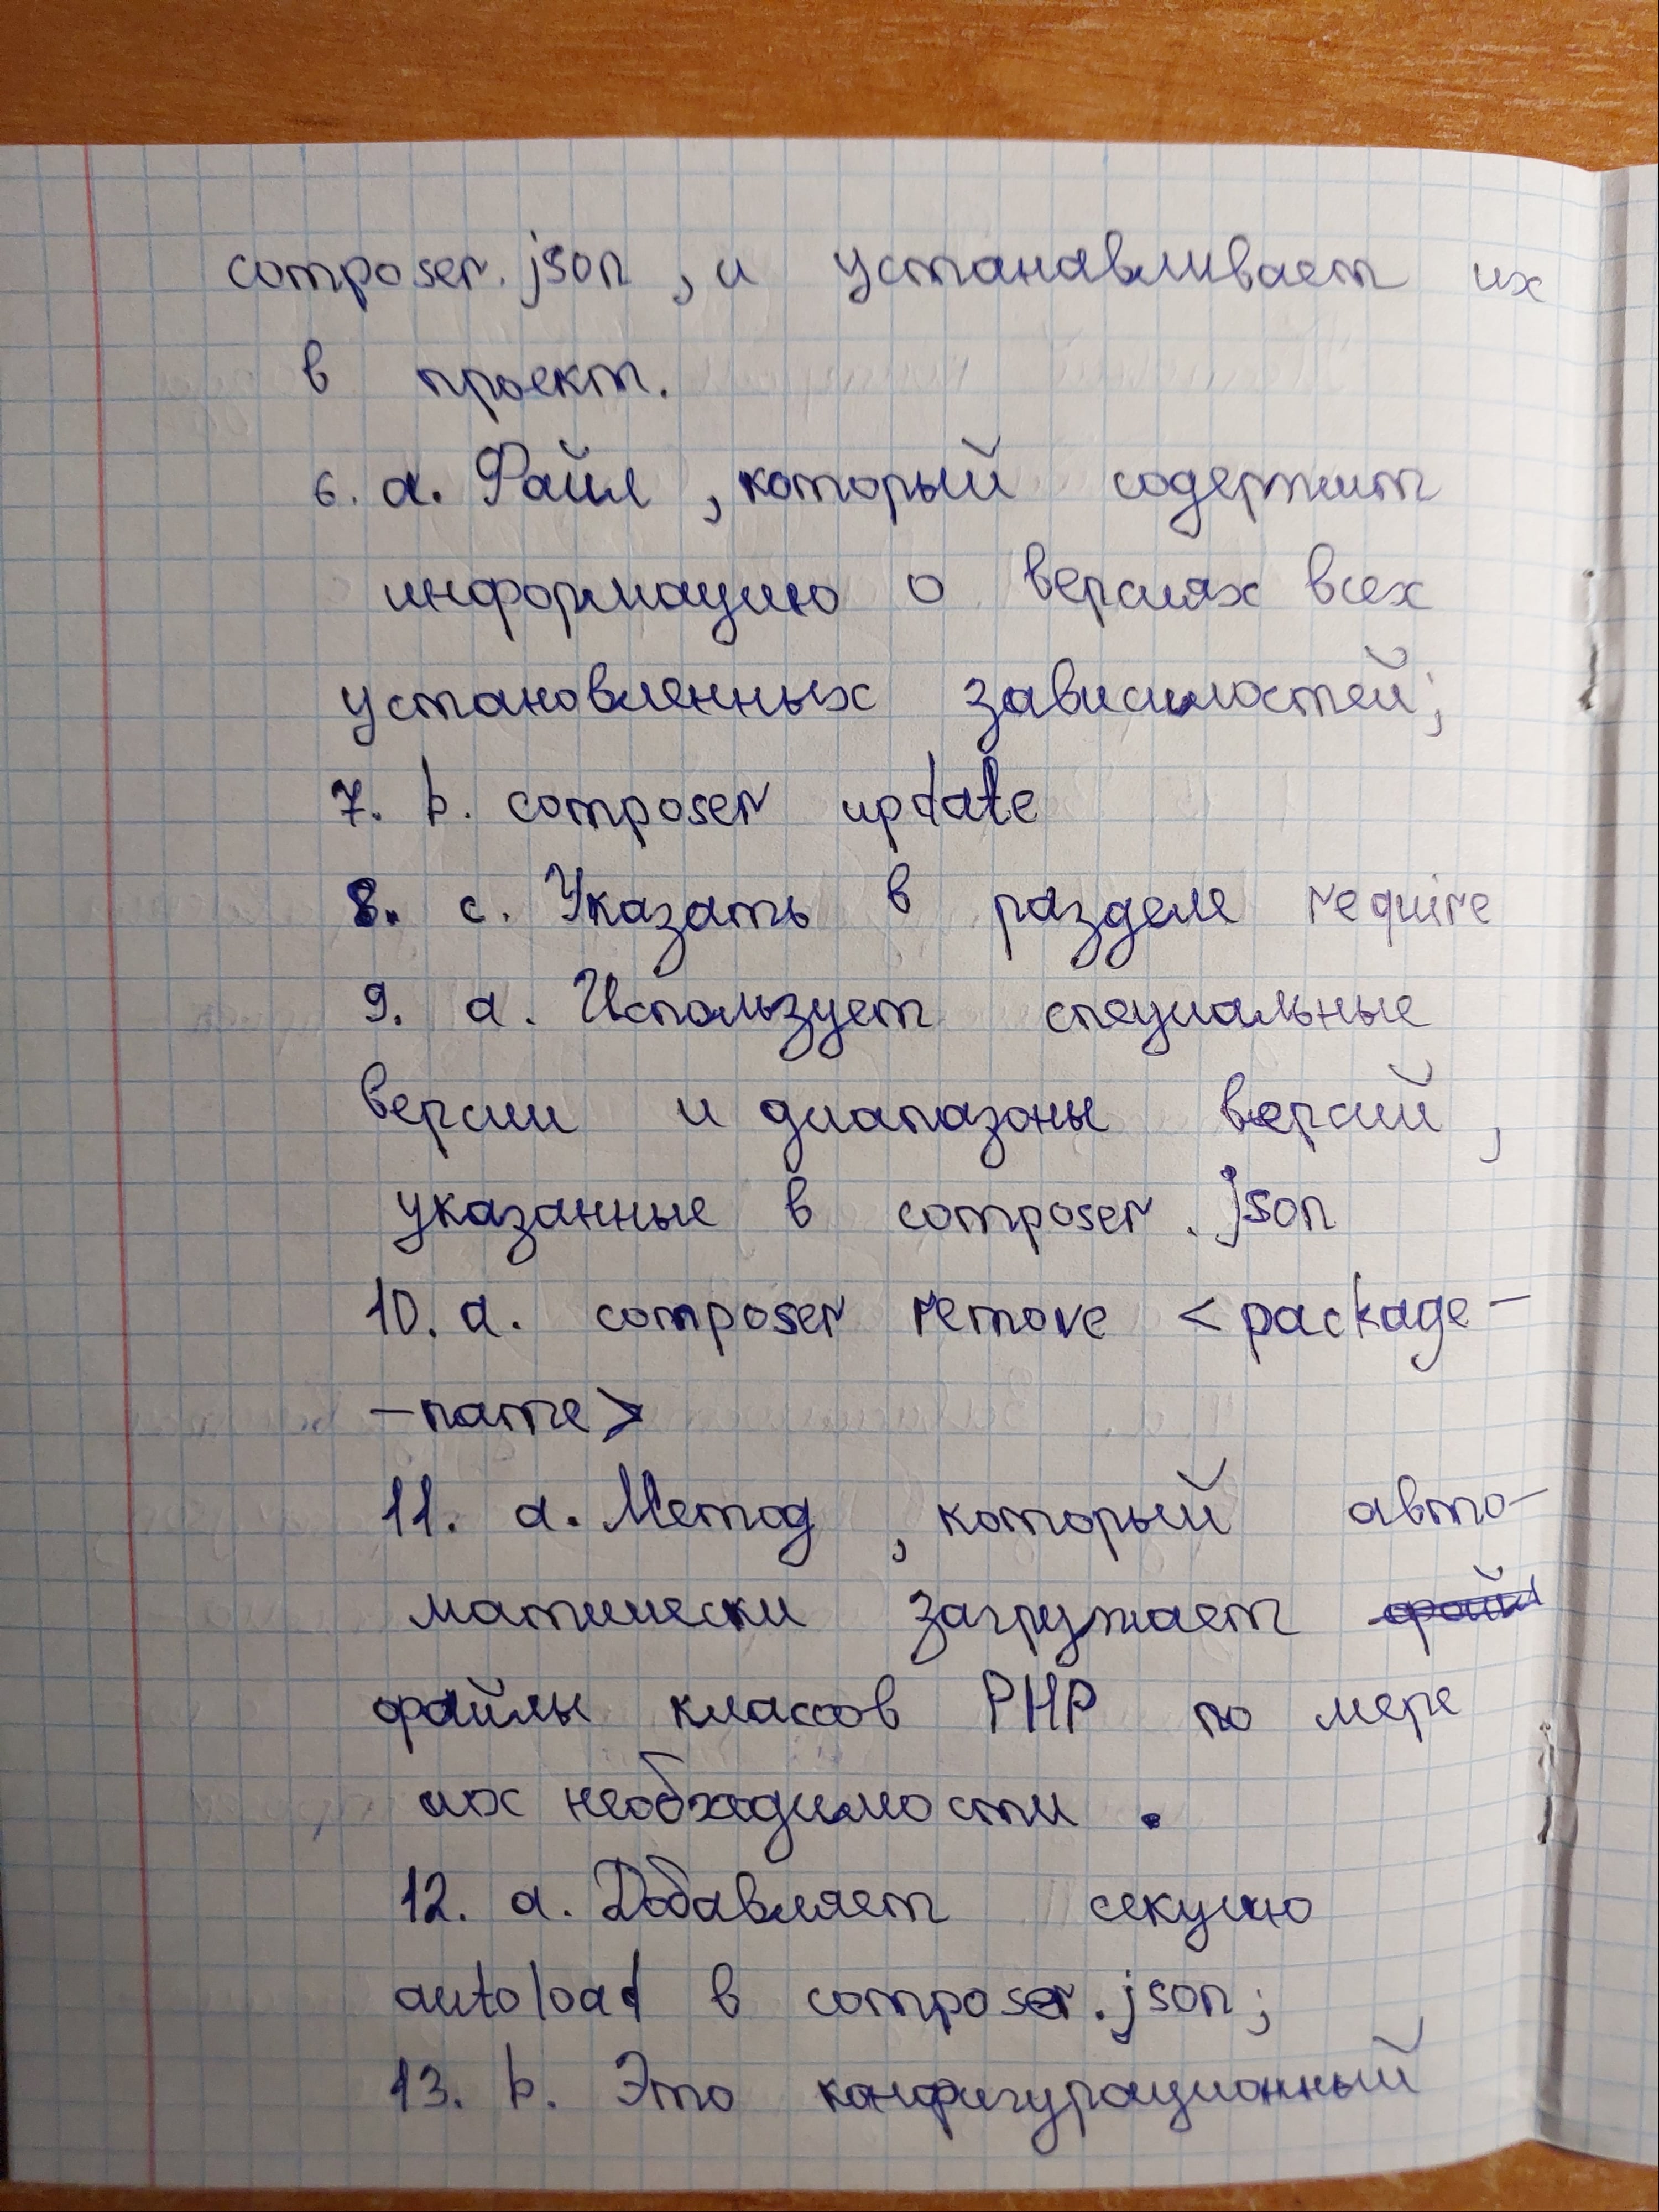 composer.json, и устанавливает их
в проект.
6. a. Файл, который содержит
информацию о версиях всех
установленных зависимостей;
7. b. composer update
8. c. Указать в разделе require
9. a. Использует специальные
версии и диапазоны версий,
указанные в composer.json
10. a. composer remove <package-
-name>
11. a. Метод, который авто-
матически загружает файл
файлы классов PHP по мере
их необходимости.
12. a. Добавляет секцию
autoload в composer.json;
13. b. Это конфигурационный